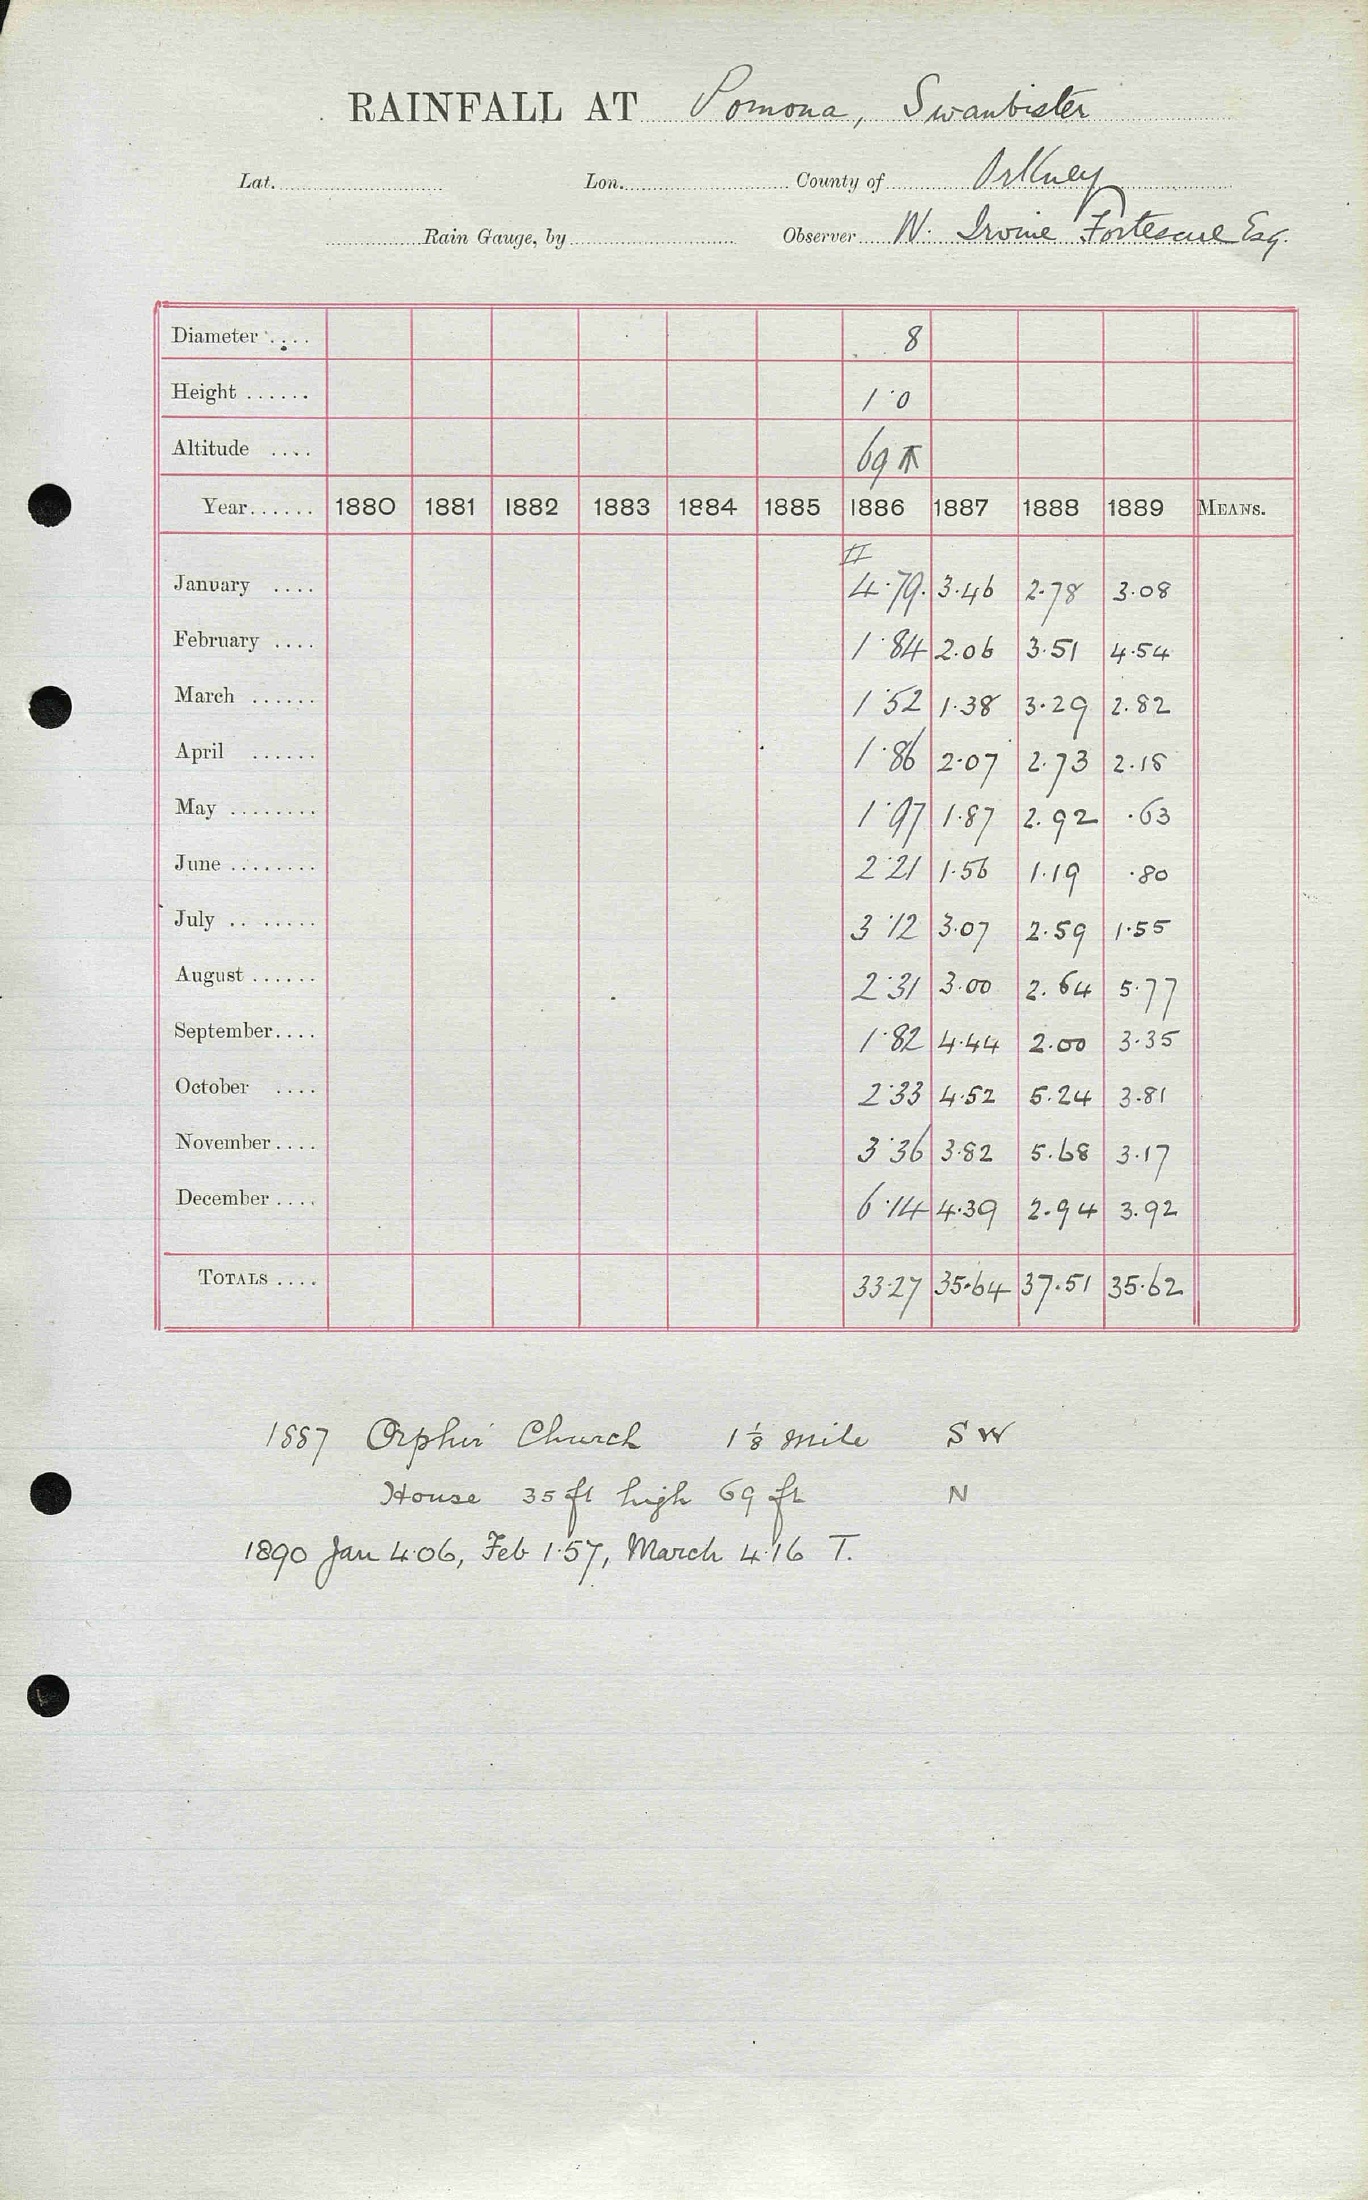 RAINFALL AT Pomona, Swanbister
Lat. Lon. County of Orkney
Rain Gauge, by Observer W. Irvine Fortescue Esq.
Diameter .... 8
Height ...... 1·0
Altitude .... 69 T
Year...... 1880 1881 1882 1883 1884 1885 1886 1887 1888 1889 MEANS.
II
January .... 4·79. 3·46 2·78 3·08
February .... 1·84 2·06 3·51 4·54
March ...... 1·52 1·38 3·29 2·82
April ...... 1·86 2·07 2·73 2·18
May ........ 1·97 1·87 2·92 ·63
June ........ 2·21 1·56 1·19 ·80
July ........ 3·12 3·07 2·59 1·55
August ...... 2·31 3·00 2·64 5·77
September.... 1·82 4·44 2·00 3·35
October .... 2·33 4·52 5·24 3·81
November.... 3·36 3·82 5·68 3·17
December.... 6·14 4·39 2·94 3·92
TOTALS .... 33·27 35·64 37·51 35·62
1887 Orphir Church 1 1/8 mile SW
House 35 ft high 69 ft N
1890 Jan 4·06, Feb 1·57, March 4·16 T.